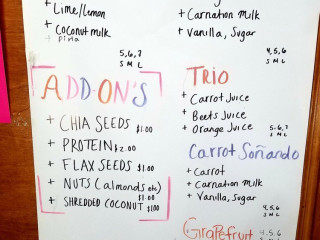 + Lime/Lemon
+ Coconut milk
+ Piña
5,6,7
S M L
ADD-ON'S
+ CHIA SEEDS $1.00
+ PROTEIN $2.00
+ FLAX SEEDS $1.00
+ NUTS (almonds etc) $1.00
+ SHREDDED COCONUT $1.00
+ Carnation Milk
+ Vanilla, Sugar
4,5,6
S M L
TRIO
+ Carrot Juice
+ Beets Juice
+ Orange Juice
5-6-7
S M L
Carrot Soñando
+ Carrot
+ Carnation Milk
+ Vanilla, Sugar
4,5,6
S M L
Grapefruit
4,5,6
S M L